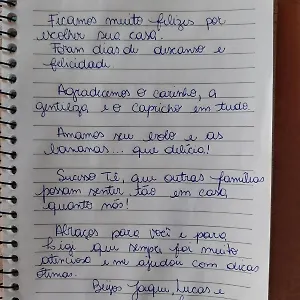 Ficamos muito felizes por
escolher sua casa.
Foram dias de descanso e
felicidade.
Agradecemos o carinho, a
gentileza e o capricho em tudo
Amamos seu bolo e as
bananas... que delícia!
Sucesso Tê, que outras famílias
possam sentir tão em casa
quanto nós!
Abraços para você e para
que sempre foi muito
atencioso e me ajudou com dicas
ótimas.
Beijos Jaque, Lucas e